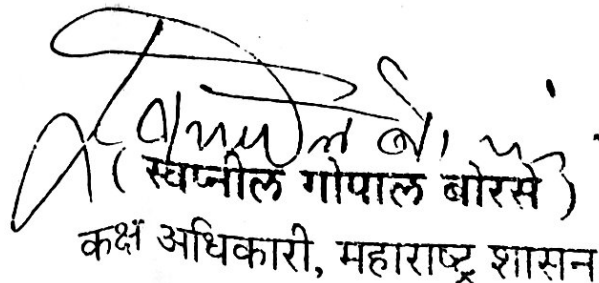 ( स्वप्नील गोपाल बोरसे )
कक्ष अधिकारी, महाराष्ट्र शासन